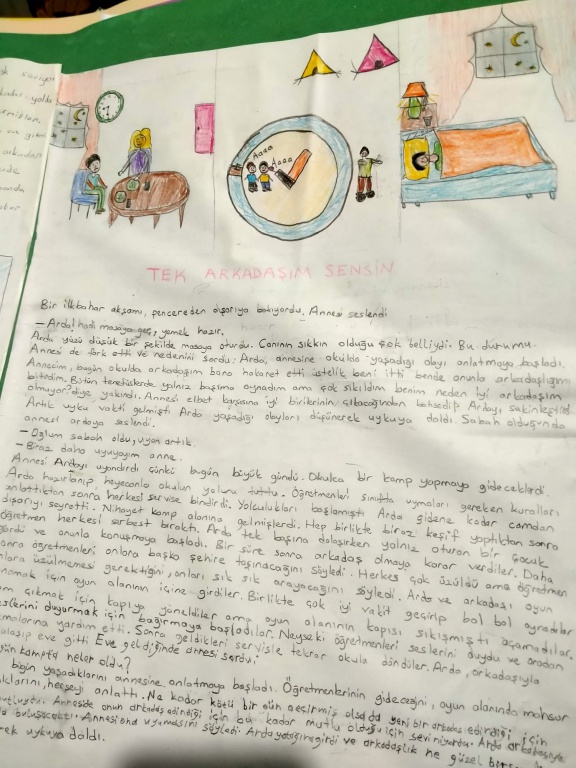 Aaaa
Aaaa
TEK ARKADAŞIM SENSİN
Bir ilkbahar akşamı, pencereden dışarıya bakıyordu. Annesi seslendi
– Arda! hadi masaya geç, yemek hazır.
Arda yüzü düşük bir şekilde masaya oturdu. Canının sıkkın olduğu çok belliydi. Bu durumu
Annesi de fark etti ve nedenini sordu: Arda, annesine okulda yaşadığı olayı anlatmaya başladı.
Annecim, bugün okulda arkadaşım bana hakaret etti üstelik beni itti bende onunla arkadaşlığımı
bitirdim. Bütün tenefüslerde yalnız başıma oynadım ama çok sıkıldım benim neden iyi arkadaşım
olmuyor? diye yakındı. Annesi elbet karşısına iyi birilerinin çıkacağından bahsedip Ardayı sakinleştirdi.
Artık uyku vakti gelmişti Arda yaşadığı olayları düşünerek uykuya daldı. Sabah olduğunda
annesi ardaya seslendi.
– Oğlum sabah oldu, uyan artık.
– Biraz daha uyuyayım anne.
Annesi Ardayı uyandırdı çünkü bugün büyük gündü. Okulca bir kamp yapmaya gideceklerdi.
Arda hazırlanıp, heyecanla okulun yolunu tuttu. Öğretmenleri sınıfta uymaları gereken kuralları
anlattıktan sonra herkesi servise bindirdi. Yolculukları başlamıştı Arda gidene kadar camdan
dışarıyı seyretti. Nihayet kamp alanına gelmişlerdi. Hep birlikte biraz keşif yaptıktan sonra
öğretmen herkesi serbest bıraktı. Arda tek başına dolaşırken yalnız oturan bir çocuk
gördü ve onunla konuşmaya başladı. Bir süre sonra arkadaş olmaya karar verdiler. Daha
sonra öğretmenleri onlara başka şehire taşınacağını söyledi. Herkes çok üzüldü ama öğretmen
onlara üzülmemesi gerektiğini, onları sık sık arayacağını söyledi. Arda ve arkadaşı oyun
oynamak için oyun alanının içine girdiler. Birlikte çok iyi vakit geçirip bol bol oynadılar
çıkmak için kapıya yöneldiler ama oyun alanının kapısı sıkışmıştı açamadılar.
seslerini duyurmak için bağırmaya başladılar. Neyseki öğretmenleri seslerini duydu ve oradan
çıkmalarına yardım etti. Sonra geldikleri servisle tekrar okula döndüler. Arda, arkadaşıyla
eve gitti Eve geldiğinde annesi sordu:
kampta neler oldu?
bugün yaşadıklarını annesine anlatmaya başladı. Öğretmenlerinin gideceğini, oyun alanında mahsur
kaldıklarını, herşeyi anlattı. Ne kadar kötü bir gün geçirmiş olsada yeni bir arkadaş edindiği için
mutluydu. Anneside onun arkadaş edindiği için bu kadar mutlu olduğu için seviniyordu. Arda arkadaşıyla
buluşacaktı. Annesi ona uyumasını söyledi. Arda yatağına girdi ve arkadaşlık ne güzel
uykuya daldı.